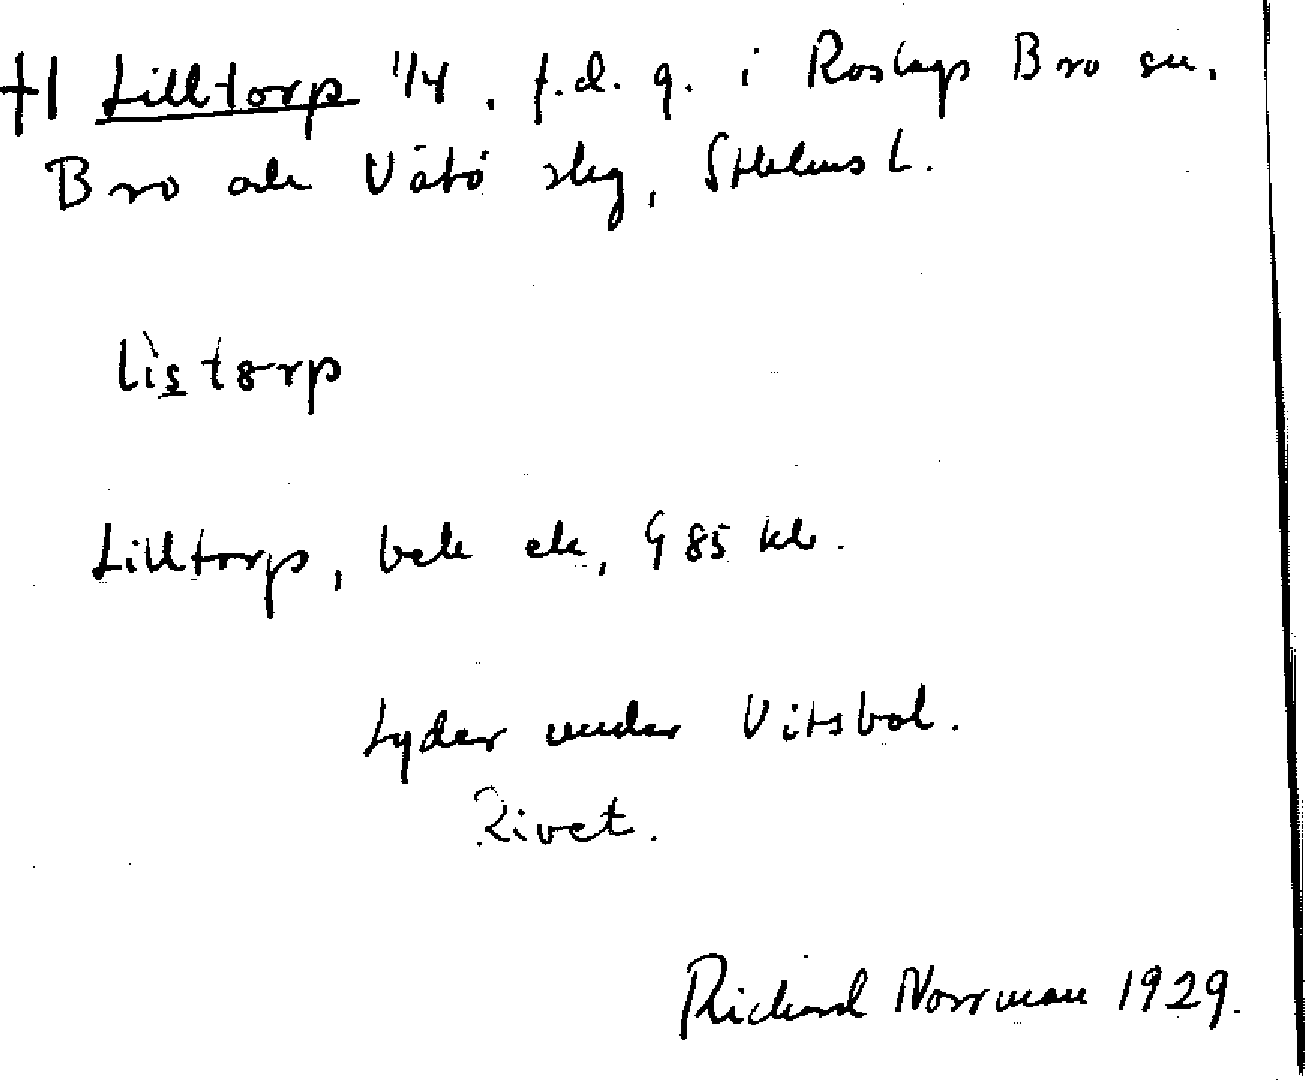 †1 Lilltorp 1/4. f.d. g. i Roslags Bro sn.
Bro och Vätö skg, Sthlms L.
lìstørp
Lilltorp, beb ek, G 85 kb.
Lyder under Vitsbol.
Rivet.
Richard Norrman 1929.